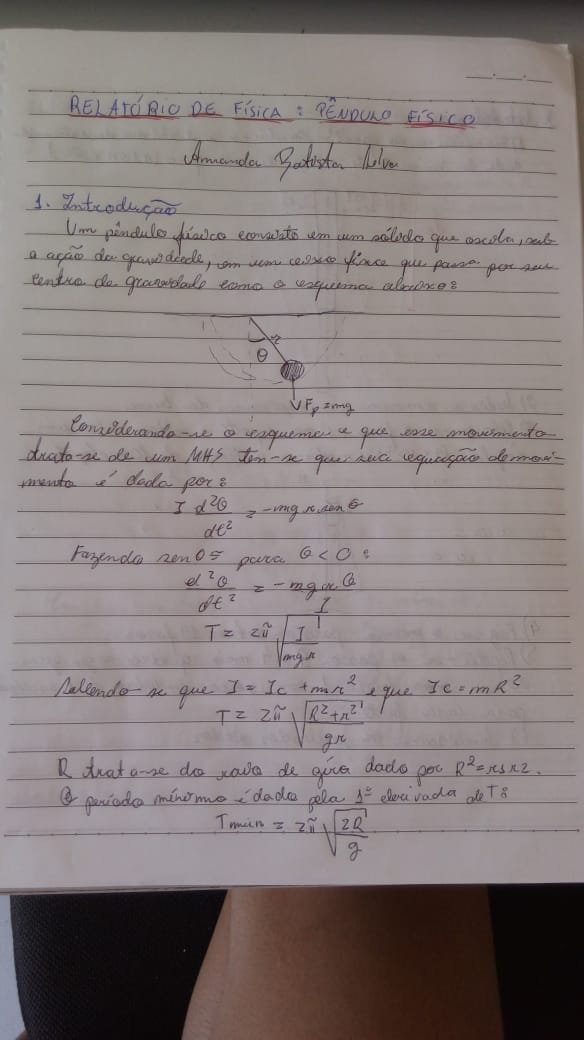 RELATÓRIO DE FÍSICA : PÊNDULO FÍSICO
Amanda Batista
1. Introdução
Um pêndulo físico consiste em um sólido que oscila, sub
a ação da gravidade, em um eixo físico que passa por seu
centro de gravidade como o esquema abaixo:
r
θ
VFp=mg
Considerando-se o esquema e que esse movimento
trata-se de um MHS tem-se que sua equação de movi-
mento é dada por:
I d²θ/dt² = -mg r. sen θ
Fazendo sen θ = para θ < 0 :
d²θ/dt² = -mgrθ/I
T = 2π √(I/mgr)
Sabendo se que I = Ic + mr² e que Ic = mR²
T = 2π √((R²+r²)/gr)
R trata-se do raio de giro dado por R²=r1r2.
O período mínimo é dado pela 1ª derivada de T:
Tmin = 2π √(2R/g)